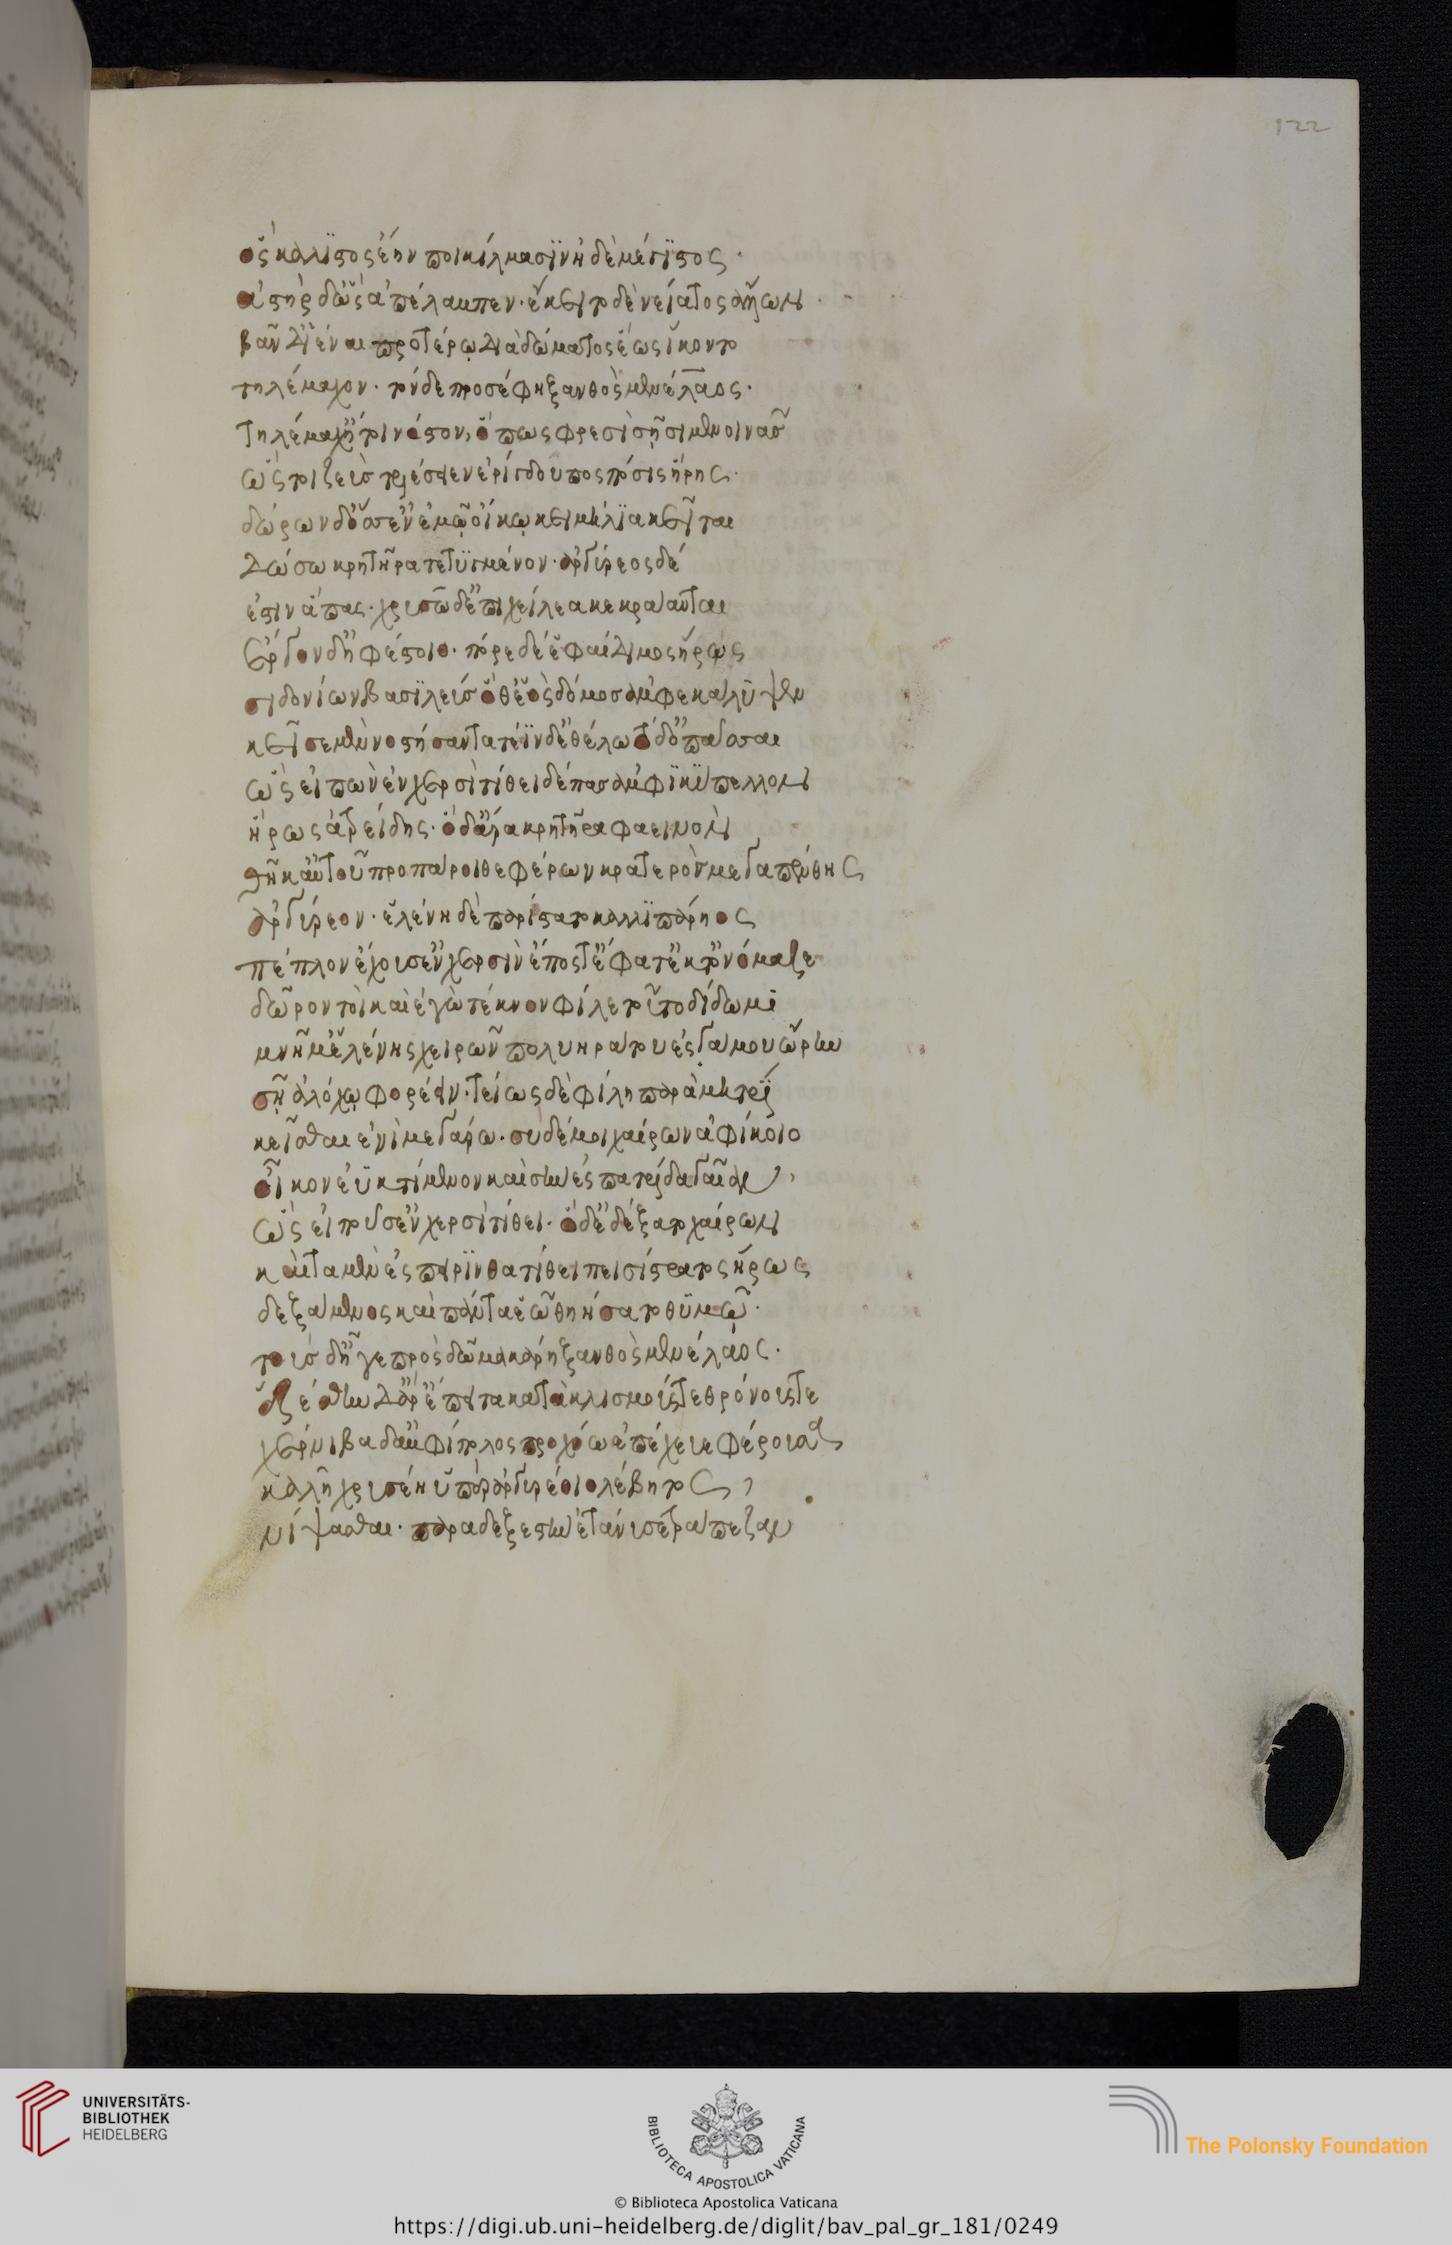 122
ὃς κάλλϊστος ἔην ποικίλμασϊν ἠδὲ μέγϊστος·
ἀστὴρ δ' ὣς ἀπέλαμπεν· ἔκειτο δὲ νείατος ἄλλων·
βὰν δ' ἰέναι προτέρω διὰ δώματος ἕως ἵκοντο
τηλέμαχον· τὸν δε προσέφη ξανθὸς μενέλαος·
τηλέμαχ' ἤτοι νόστον, ὅπως φρεσὶ σῇσι μενοινᾷς
ὥς τοι ζεὺς τελέσειεν ἐρίγδουπος πόσις ἥρης·
δώρων δ' ὅσσ' ἐν ἐμῷ οἴκῳ κειμήλϊα κεῖται
δώσω κρητῆρα τετϋγμένον· ἀργύρεος δέ
ἐστιν ἅπας· χρυσῶ δ' ἐπι χείλεα κεκράανται
ἔργον δ' ἡφέστοιο· πόρε δέ ἑ φαίδιμος ἥρως
σιδονίων βασϊλεὺς ὅθ' ἑὸς δόμος ἀμφεκάλϋψεν
κεῖσε με νοστήσαντα τεῒν δ' ἐθέλω τόδ' ὀπάσσαι
ὣς εἰπὼν ἐν χερσὶ τίθει δέπας ἀμφϊκϋπελλον
ἥρως ἀτρείδης· ὁ δ' ἄρα κρητῆρα φαεινὸν
θῆκ' αὐτοῦ προπάροιθε φέρων κρατερὸς μεγαπένθης
ἀργύρεον· ἑλένη δὲ παρίστατο καλλϊπάρηος
πέπλον ἔχουσ' ἐν χερσὶν ἔπος τ' ἔφατ' ἔκ τ' ὀνόμαζε
δῶρον τοὶ καὶ ἐγὼ τέκνον φίλε τοῦτο δίδωμι
μνῆμ' ἑλένης χειρῶν πολυηράτου ἐς γάμου ὥρην
σῇ ἀλόχῳ φορέειν· τείως δὲ φίλη παρὰ μητρΐ
κεῖσθαι ἐνὶ μεγάρω· συ δέ μοι χαίρων ἀφίκοιο
οἶκον ἐϋκτίμενον καὶ σὴν ἐς πατρίδα γαῖαν,
ὣς εἰποῦσ' ἐν χερσὶ τίθει· ὁ δ' ἐδέξατο χαίρων
καὶ τὰ μὲν ἐς πείρϊνθα τίθει πεισίστρατος ἥρως
δεξάμενος καὶ πάντα ἑῷ θηήσατο θϋμῶ·
τοὺς δ' ἦγε πρὸς δῶμα κάρη ξανθὸς μενέλαος·
ἑζέσθην δ' ἄρ' ἔπειτα κατὰ κλισμούς τε θρόνους τε
χέρνιβα δ' ἀμφίπολος προχόω ἐπέχευε φέρουσα
καλῇ χρυσέη ὑπὲρ ἀργυρέοιο λέβητος,
νίψασθαι· παρα δὲ ξεστὴν ἐτάνυσε τράπεζαν
UNIVERSITÄTS-
BIBLIOTHEK
HEIDELBERG
BIBLIOTECA APOSTOLICA VATICANA
The Polonsky Foundation
© Biblioteca Apostolica Vaticana
https://digi.ub.uni-heidelberg.de/diglit/bav_pal_gr_181/0249